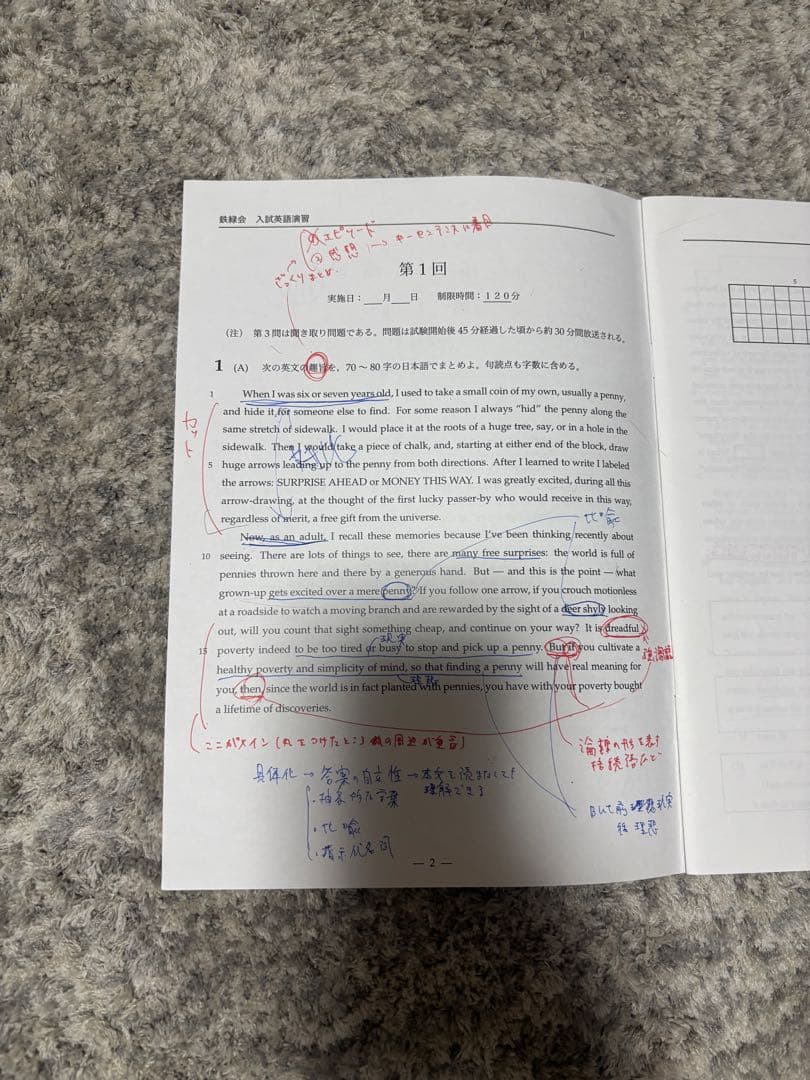 鉄緑会 入試英語演習
エピソード
②感想 キーセンテンスに着目
ざっくりまとめ
第1回
5
実施日：___月___日 制限時間：120分
(注) 第3問は聞き取り問題である。問題は試験開始後45分経過した頃から約30分間放送される。
1 (A) 次の英文の趣旨を，70～80字の日本語でまとめよ。句読点も字数に含める。
1 When I was six or seven years old, I used to take a small coin of my own, usually a penny,
and hide it for someone else to find. For some reason I always "hid" the penny along the
カット
same stretch of sidewalk. I would place it at the roots of a huge tree, say, or in a hole in the
sidewalk. Then I would take a piece of chalk, and, starting at either end of the block, draw
5 huge arrows leading up to the penny from both directions. After I learned to write I labeled
the arrows: SURPRISE AHEAD or MONEY THIS WAY. I was greatly excited, during all this
arrow-drawing, at the thought of the first lucky passer-by who would receive in this way,
regardless of merit, a free gift from the universe.
比喩
Now, as an adult, I recall these memories because I've been thinking recently about
10 seeing. There are lots of things to see, there are many free surprises: the world is full of
pennies thrown here and there by a generous hand. But — and this is the point — what
grown-up gets excited over a mere penny? If you follow one arrow, if you crouch motionless
at a roadside to watch a moving branch and are rewarded by the sight of a deer shyly looking
out, will you count that sight something cheap, and continue on your way? It is dreadful
現実
15 poverty indeed to be too tired or busy to stop and pick up a penny. But if you cultivate a
healthy poverty and simplicity of mind, so that finding a penny will have real meaning for
理想
you, then, since the world is in fact planted with pennies, you have with your poverty bought
a lifetime of discoveries.
ここがメイン
論理の形を表す
接続語など
具体化 → 答案の自立性 → 本文を読まなくても
理解できる
・抽象的な言葉
・比喩
・指示代名詞
Butで前 現実
後 理想
— 2 —